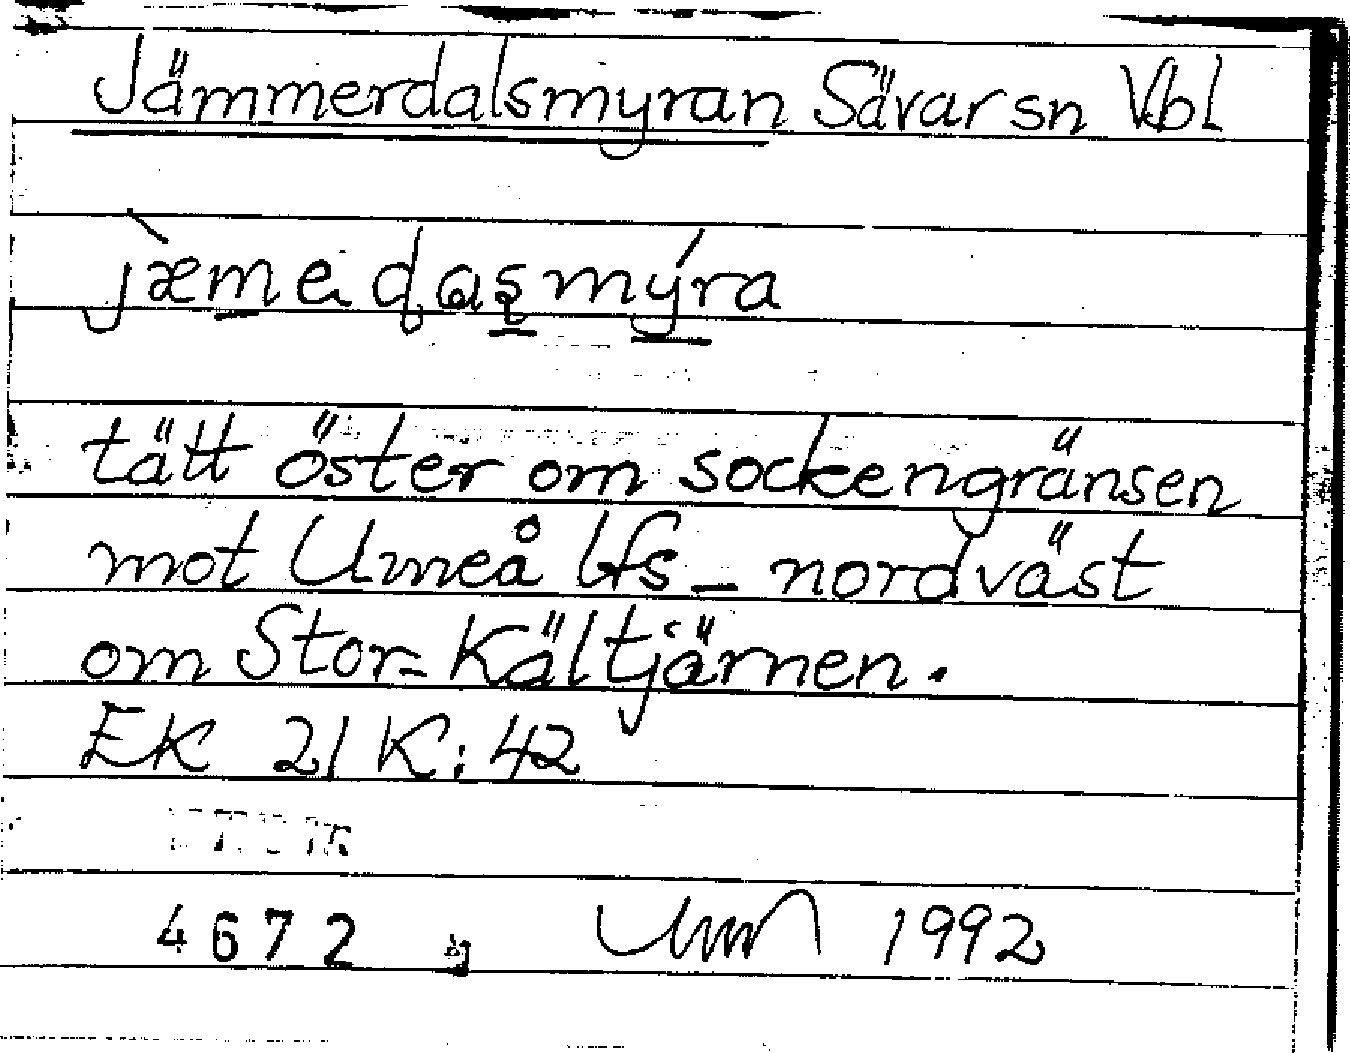 Jämmerdalsmyran Sävar sn Vbl
tätt öster om sockengränsen
mot Umeå lfs – nordväst
om Stor-Kältjärnen.
EK 21 K:42
4672 1992